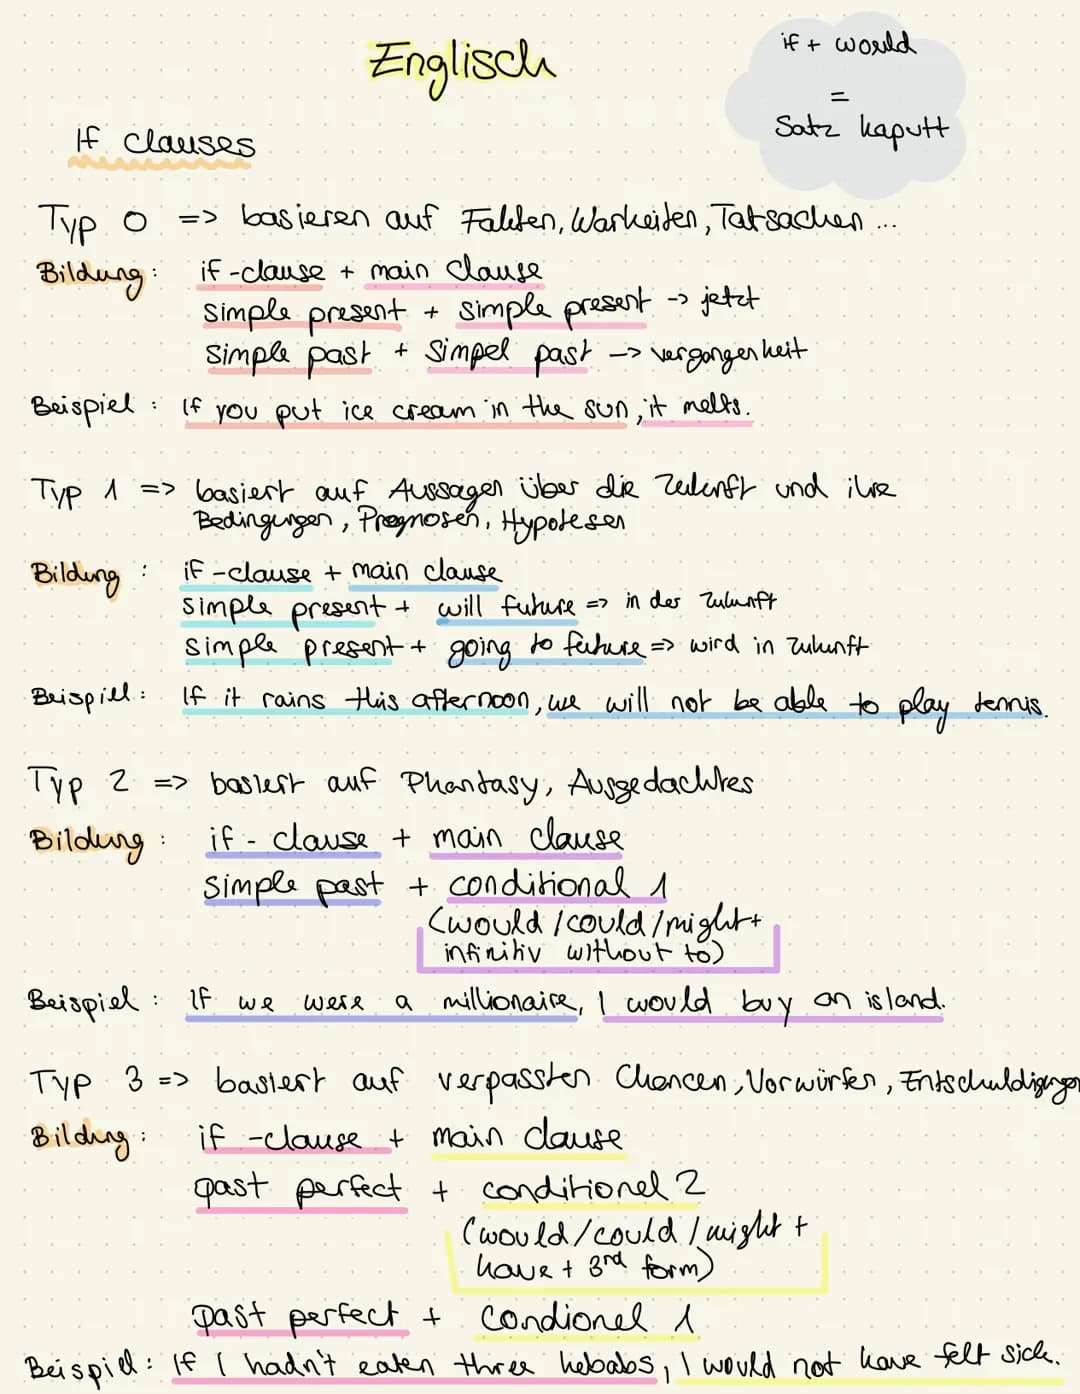 Englisch
if + would
=
Satz kaputt
If clauses
Typ 0 => basieren auf Fakten, Warheiten, Tatsachen ...
Bildung: if-clause + main clause
simple present + simple present -> jetzt
simple past + Simpel past -> vergangenheit
Beispiel: If you put ice cream in the sun, it melts.
Typ 1 => basiert auf Aussagen über die Zukunft und ihre
Bedingungen, Prognosen, Hypotesen
Bildung: if-clause + main clause
simple present + will future => in der Zukunft
simple present + going to future => wird in Zukunft
Beispiel: If it rains this afternoon, we will not be able to play tennis.
Typ 2 => basiert auf Phantasy, Ausgedachtes
Bildung: if - clause + main clause
simple past + conditional 1
(would / could / might +
infinitiv without to)
Beispiel: If we were a millionaire, I would buy an island.
Typ 3 => basiert auf verpassten Chancen, Vorwürfen, Entschuldigungen
Bildung: if -clause + main clause
past perfect + conditionel 2
(would / could / might +
have + 3rd form)
past perfect + Condionel 1
Beispiel: If I hadn't eaten three kebabs, I would not have felt sick.